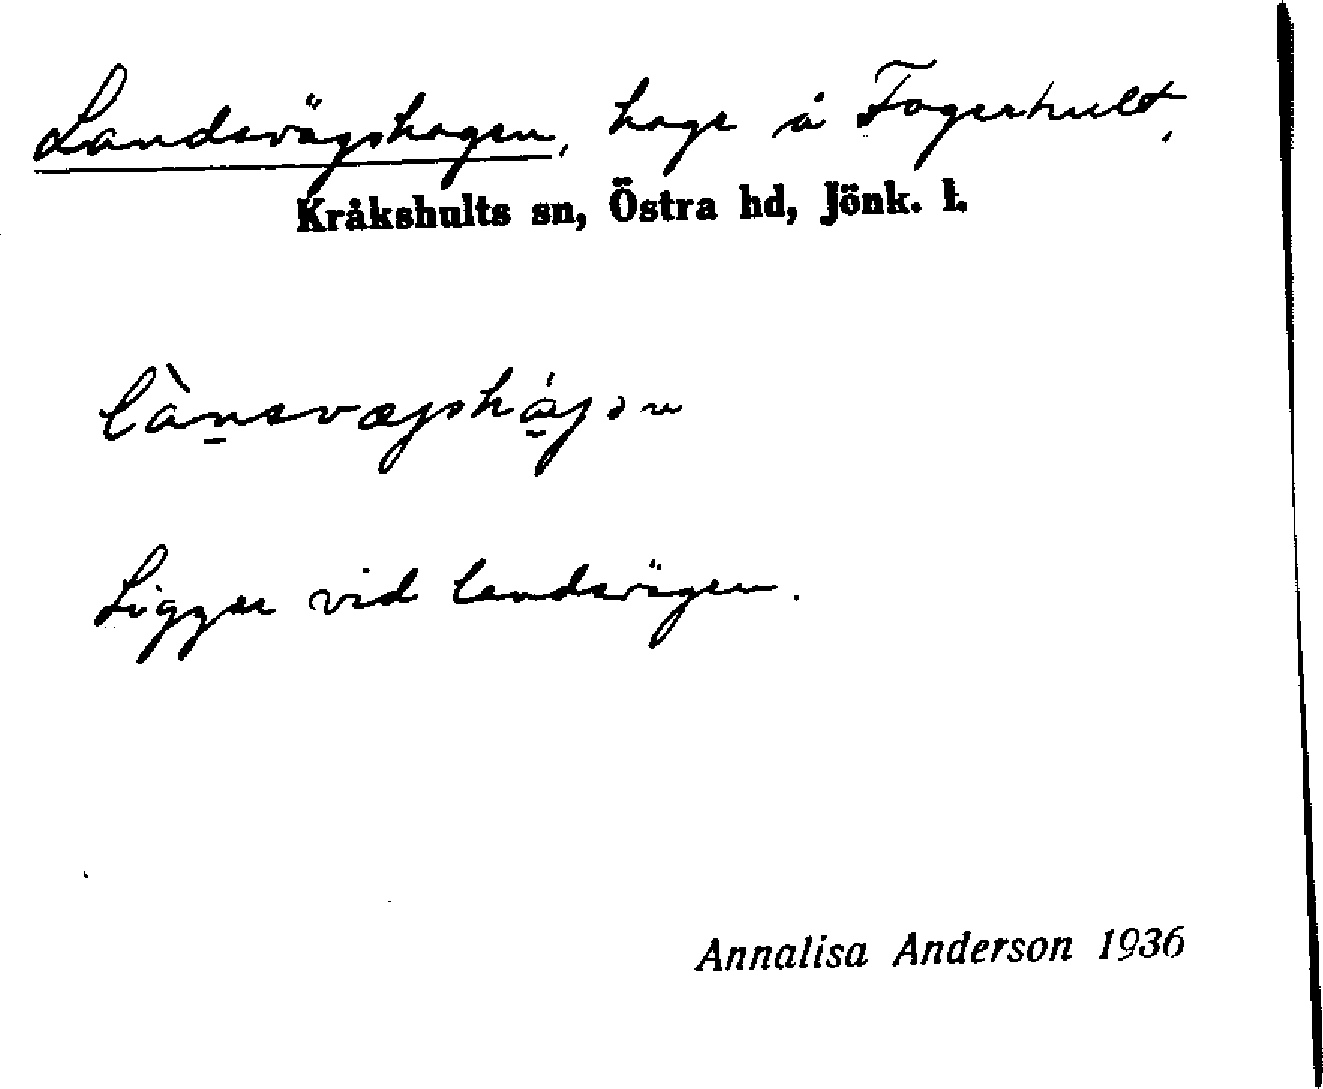 Landsvägshagen, hage å Fagerhult,
Kråkshults sn, Östra hd, Jönk. l.
lànsvæɡsháɡən
Ligger vid landsvägen.
Annalisa Anderson 1936